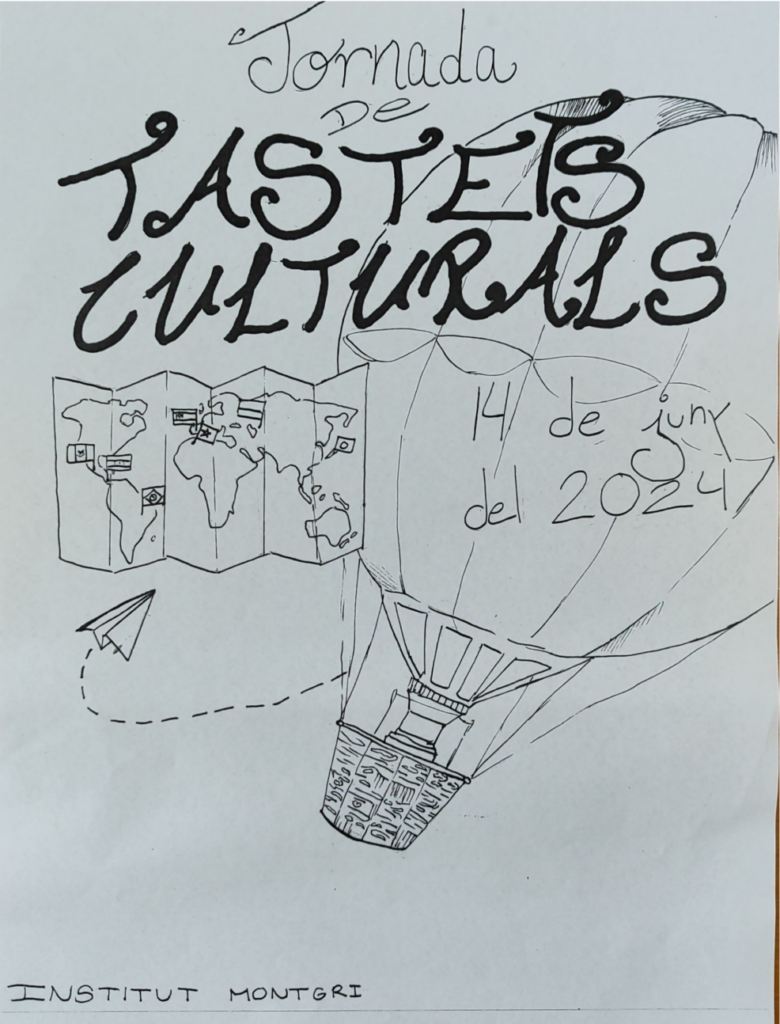 Jornada
DE
TASTETS
CULTURALS
14 de juny
del 2024
INSTITUT MONTGRI